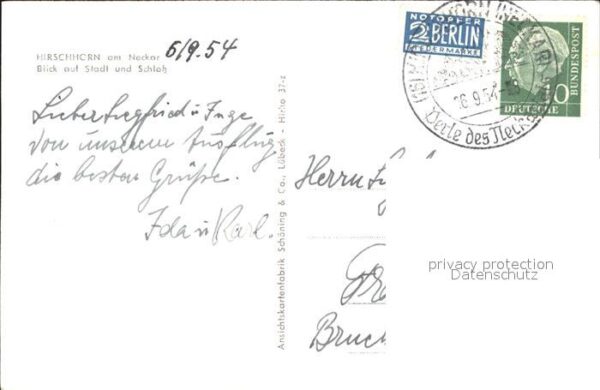 HIRSCHHORN am Neckar 6/9.54
Blick auf Stadt und Schloß
NOTOPFER
2 BERLIN
STEUERMARKE
HIRSCHHORN (NECKAR)
6.9.54
Perle des Neck
DEUTSCHE
BUNDESPOST
10
Lieber Siegfried u Inge
Von unserem Ausflug
die besten Grüße.
Ida u Karl.
Ansichtskartenfabrik Schöning & Co., Lübeck - Hirho 37-z
Herrn
Bruch
privacy protection
Datenschutz